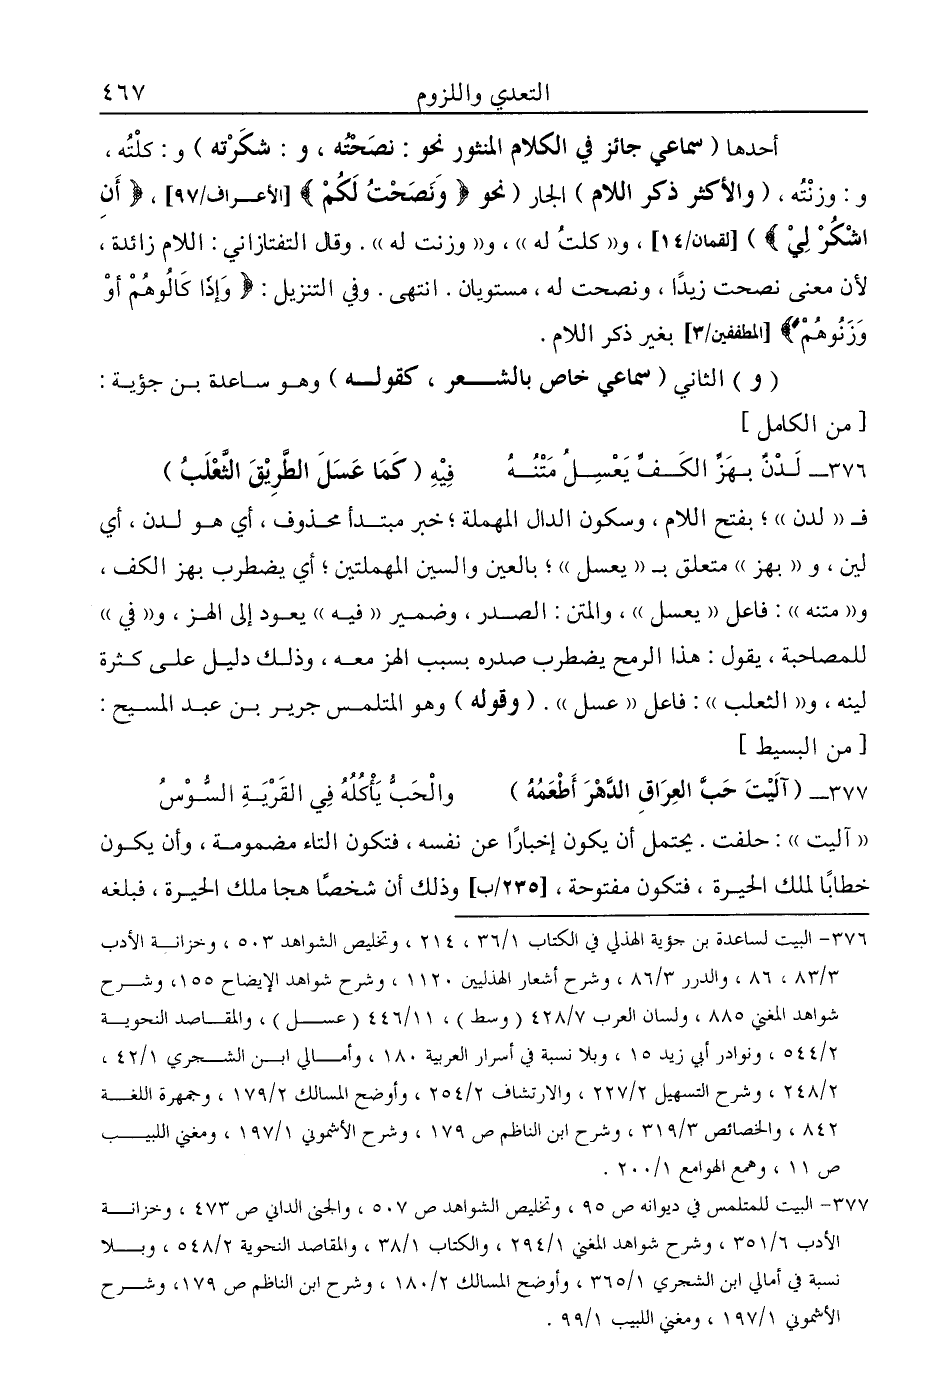 التعدي واللزوم ٤٦٧
أحدها ( سماعي جائز في الكلام المنثور نحو : نصَحْتُه ، و : شكَرْته ) و : كلْتُه ،
و : وزنْتُه ، ( والأكثر ذكر اللام ) الجار ( نحو ﴿ وَنَصَحْتُ لَكُمْ ﴾ [الأعــراف/٩٧] ، ﴿ أَنِ
اشْكُرْ لِيْ ﴾ ) [لقمان/١٤] ، و« كلتُ له » ، و« وزنت له » . وقال التفتازاني : اللام زائدة ،
لأن معنى نصحت زيدًا ، ونصحت له ، مستويان . انتهى . وفي التنزيل : ﴿ وَإِذَا كَالُوهُمْ أوْ
وَزَنُوهُمْ ﴾ [المطففين/٣] بغير ذكر اللام .
( و ) الثاني ( سماعي خاص بالشــعر ، كقولــه ) وهــو ســاعدة بــن جؤيــة :
[ من الكامل ]
٣٧٦ــ لَــدْنٌ بــهَزِّ الكَــفِّ يَعْسِــلُ مَتْنُــهُ فِيْهِ ( كَمَا عَسَلَ الطَّرِيْقَ الثَّعْلَبُ )
فـ « لدن » ؛ بفتح اللام ، وسكون الدال المهملة ؛ خبر مبتــدأ محذوف ، أي هــو لــدن ، أي
لين ، و « بهز » متعلق بـ « يعسل » ؛ بالعين والسين المهملتين ؛ أي يضطرب بهز الكف ،
و« متنه » : فاعل « يعسل » ، والمتن : الصــدر ، وضمــير « فيــه » يعــود إلى الهــز ، و« في »
للمصاحبة ، يقول : هــذا الرمح يضطرب صدره بسبب الهز معــه ، وذلــك دليــل علــى كــثرة
لينه ، و« الثعلب » : فاعل « عسل » . ( وقوله ) وهو المتلمــس جريــر بــن عبــد المســيح :
[ من البسيط ]
٣٧٧ــ ( آلَيْتَ حَبَّ العِرَاقِ الدَّهْرَ أَطْعَمُهُ ) والْحَبُّ يَأْكُلُهُ فِي القَرْيَــةِ السُّــوْسُ
« آليت » : حلفت . يحتمل أن يكون إخبارًا عن نفسه ، فتكون التاء مضمومــة ، وأن يكــون
خطابًا لملك الحيــرة ، فتكون مفتوحة ، [٢٣٥/ب] وذلك أن شخصًا هجا ملك الحيرة ، فبلغه
٣٧٦- البيت لساعدة بن جؤية الهذلي في الكتاب ٣٦/١ ، ٢١٤ ، وتخليص الشواهد ٥٠٣ ، وخزانــة الأدب
٨٣/٣ ، ٨٦ ، والدرر ٨٦/٣ ، وشرح أشعار الهذليين ١١٢٠ ، وشرح شواهد الإيضاح ١٥٥، وشــرح
شواهد المغني ٨٨٥ ، ولسان العرب ٤٢٨/٧ ( وسط ) ، ٤٤٦/١١ ( عســل ) ، والمقــاصد النحويــة
٥٤٤/٢ ، ونوادر أبي زيد ١٥ ، وبلا نسبة في أسرار العربية ١٨٠ ، وأمــالي ابــن الشــجري ٤٢/١ ،
٢٤٨/٢ ، وشرح التسهيل ٢٢٧/٢ ، والارتشاف ٢٥٤/٢ ، وأوضح المسالك ١٧٩/٢ ، وجمهرة اللغــة
٨٤٢ ، والخصائص ٣١٩/٣ ، وشرح ابن الناظم ص ١٧٩ ، وشرح الأشموني ١٩٧/١ ، ومغني اللبيــب
ص ١١ ، وهمع الهوامع ٢٠٠/١ .
٣٧٧- البيت للمتلمس في ديوانه ص ٩٥ ، وتخليص الشواهد ص ٥٠٧ ، والجنى الداني ص ٤٧٣ ، وخزانــة
الأدب ٣٥١/٦ ، وشرح شواهد المغني ٢٩٤/١ ، والكتاب ٣٨/١ ، والمقاصد النحوية ٥٤٨/٢ ، وبــلا
نسبة في أمالي ابن الشجري ٣٦٥/١ ، وأوضح المسالك ١٨٠/٢ ، وشرح ابن الناظم ص ١٧٩، وشــرح
الأشموني ١٩٧/١ ، ومغني اللبيب ٩٩/١ .